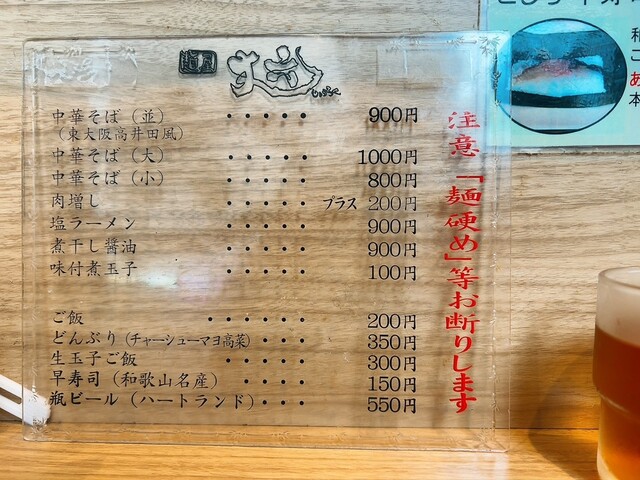 麺屋
中華そば（並）・・・・・900円
（東大阪高井田風）
中華そば（大）・・・・・1000円
中華そば（小）・・・・・800円
肉増し・・・・・プラス 200円
塩ラーメン・・・・・900円
煮干し醬油・・・・・900円
味付煮玉子・・・・・100円
ご飯・・・・・・200円
どんぶり（チャーシューマヨ高菜）・・・350円
生玉子ご飯・・・・300円
早寿司（和歌山名産）・・・・150円
瓶ビール（ハートランド）・・・550円
注意「麺硬め」等お断りします